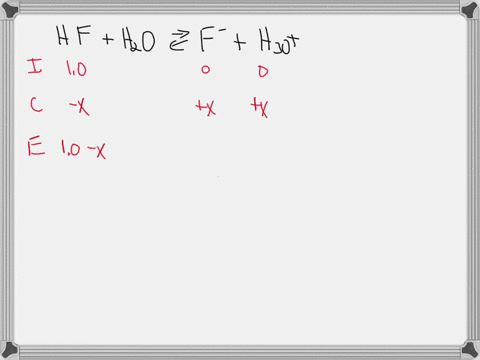 HF + H2O ⇌ F⁻ + H3O+
I 1.0 0 0
C -x +x +x
E 1.0-x